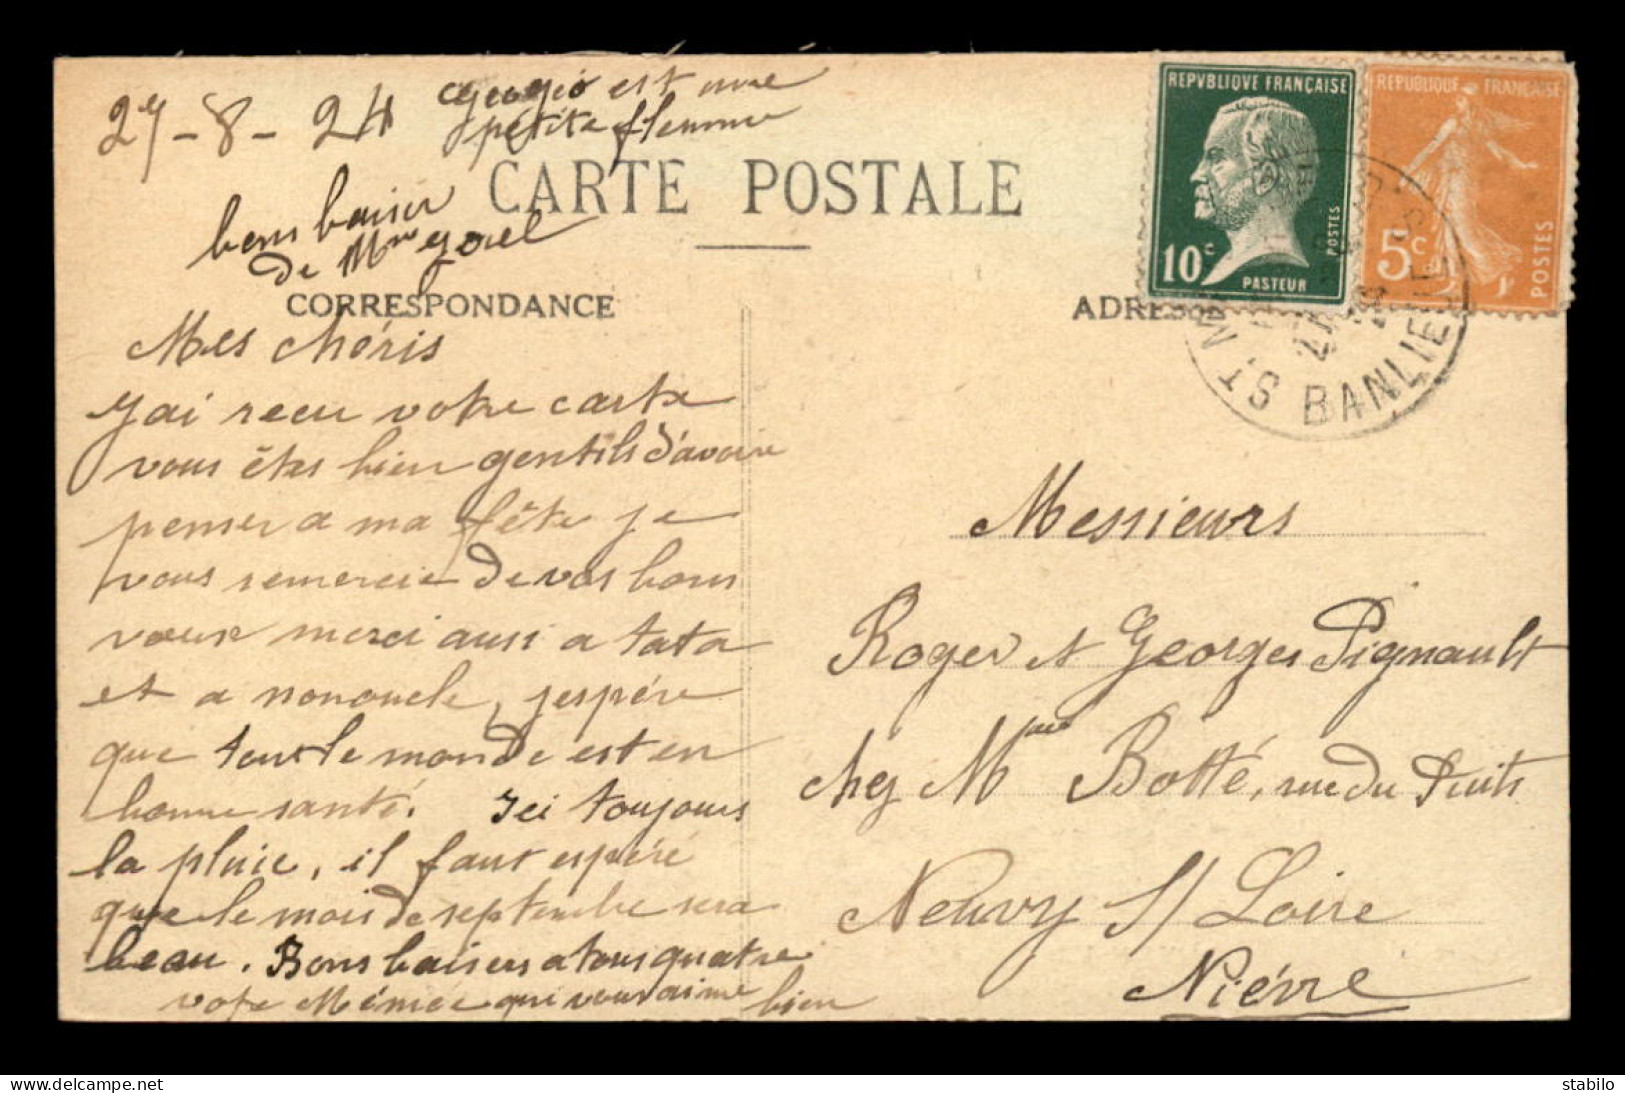 27-8-24
est une
petite flemme
bons baiser
de Mme
CARTE POSTALE
CORRESPONDANCE
Mes chéris
J'ai recu votre carte
vous êtes bien gentils d'avoir
penser a ma fête je
vous remercie de vos bons
vœux merci aussi a tata
et a nononcle, j'espére
que tout le monde est en
bonne santé. Ici toujours
la pluie, il faut espéré
que le mois de septembre sera
beau. Bons baisers a tous quatre
votre Mémée qui vous aime bien
REPVBLIQVE FRANÇAISE
10c
POSTES
PASTEUR
REPUBLIQUE FRANÇAISE
5c
POSTES
ST. BANLIEUE
ADRESSE
Messieurs
Roger et Georges Pignault
chez Mme Botté, rue du Puits
Neuvy S/ Loire
Niévre
delcampe.net
stabilo